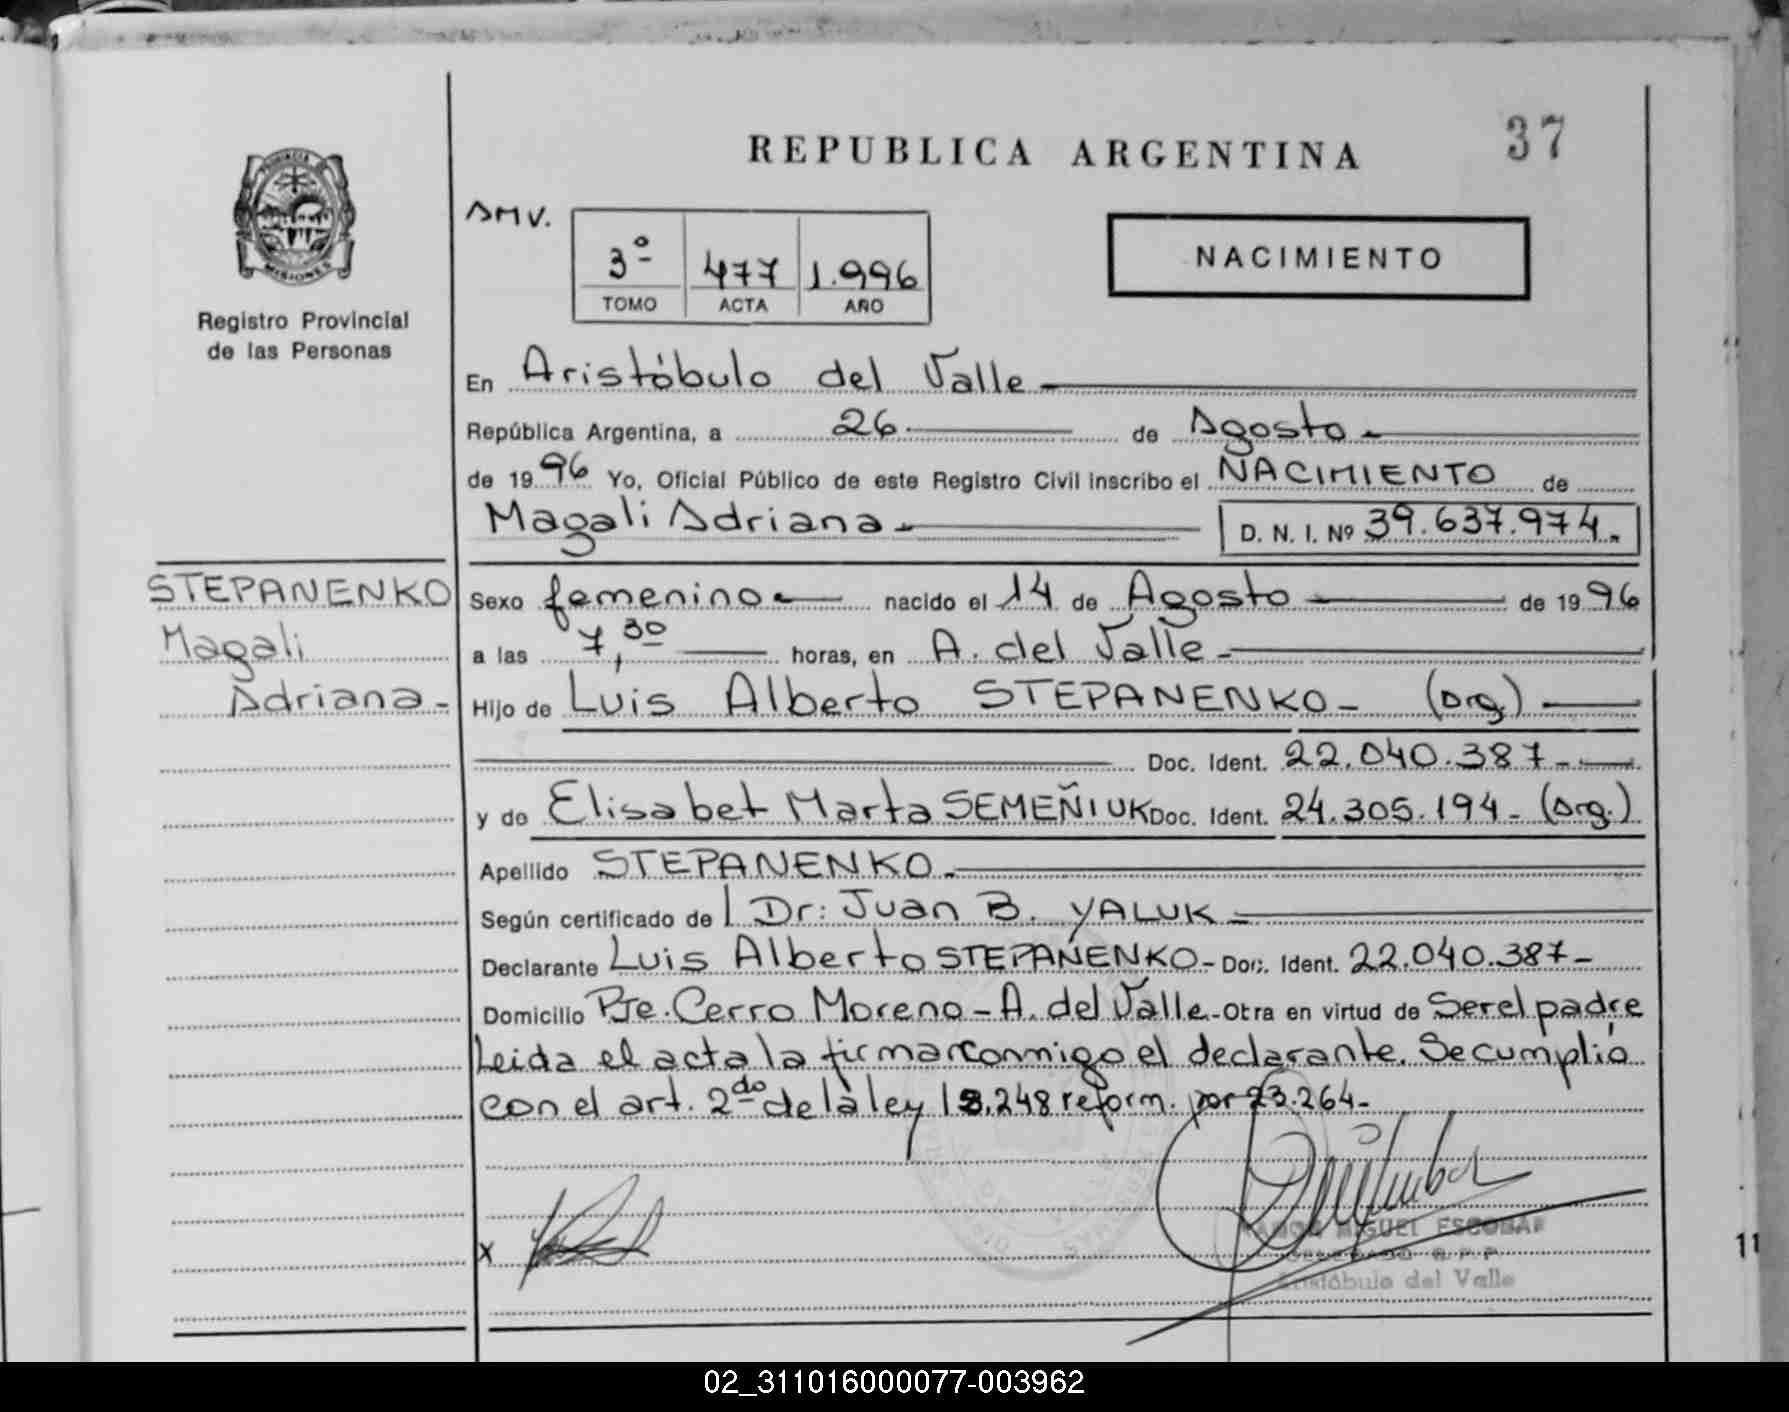 REPUBLICA ARGENTINA
37
PROVINCIA
MISIONES
Registro Provincial
de las Personas
AMV.
3º 477 1.996
TOMO ACTA AÑO
NACIMIENTO
En Aristóbulo del Valle
República Argentina, a 26 de Agosto
de 1996 Yo, Oficial Público de este Registro Civil inscribo el NACIMIENTO de
Magali Adriana D. N. I. Nº 39.637.974.
STEPANENKO
Magali
Adriana
Sexo femenino nacido el 14 de Agosto de 1996
a las 7,30 horas, en A. del Valle
Hijo de Luis Alberto STEPANENKO (arg)
Doc. Ident. 22.040.387
y de Elisabet Marta SEMEÑIUK Doc. Ident. 24.305.194 (arg.)
Apellido STEPANENKO
Según certificado de Dr: Juan B. YALUK
Declarante Luis Alberto STEPANENKO Doc. Ident. 22.040.387
Domicilio Pje. Cerro Moreno - A. del Valle. Otra en virtud de Ser el padre
Leida el acta la firma conmigo el declarante. Se cumplió
con el art. 2do de la ley 18.248 reform. por 23.264.
X
MIGUEL ESCOBAR
DELEGADO R.P.P.
Aristóbulo del Valle
11
02_311016000077-003962